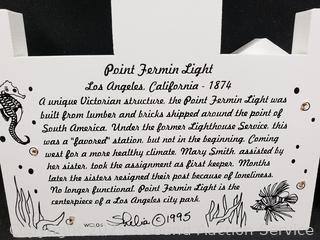 Point Fermin Light
Los Angeles, California - 1874
A unique Victorian structure, the Point Fermin Light was
built from lumber and bricks shipped around the point of
South America. Under the former Lighthouse Service, this
was a "favored" station, but not in the beginning. Coming
west for a more healthy climate, Mary Smith, assisted by
her sister, took the assignment as first keeper. Months
later the sisters resigned their post because of loneliness.
No longer functional, Point Fermin Light is the
centerpiece of a Los Angeles city park.
Sheila © 1995